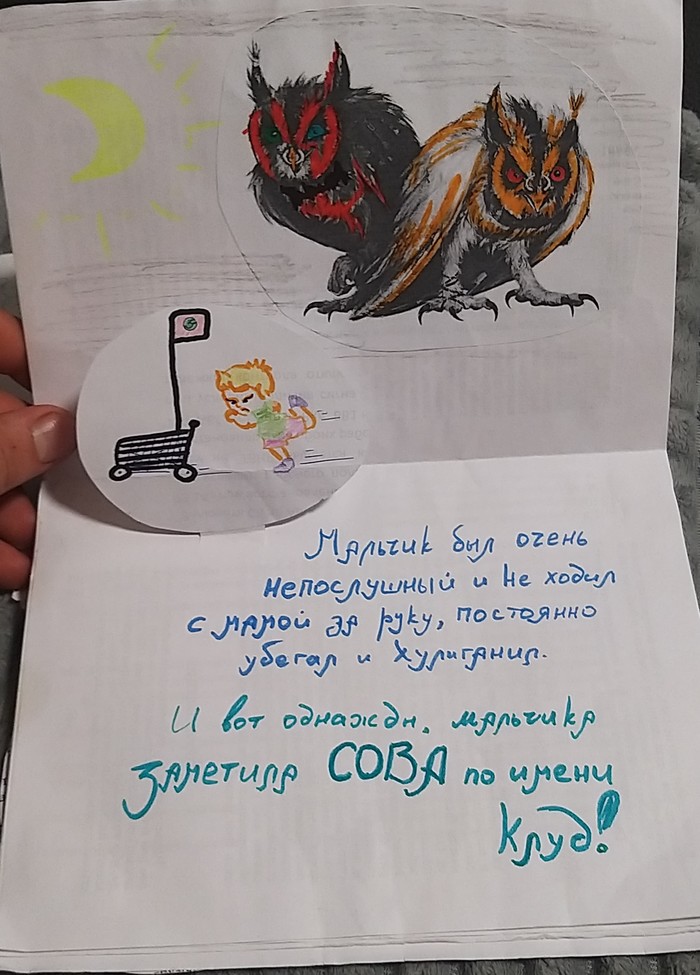 Мальчик был очень
непослушный и не ходил
с мамой за руку, постоянно
убегал и хулиганил.
И вот однажды, мальчика
заметила СОВА по имени
Клуд!